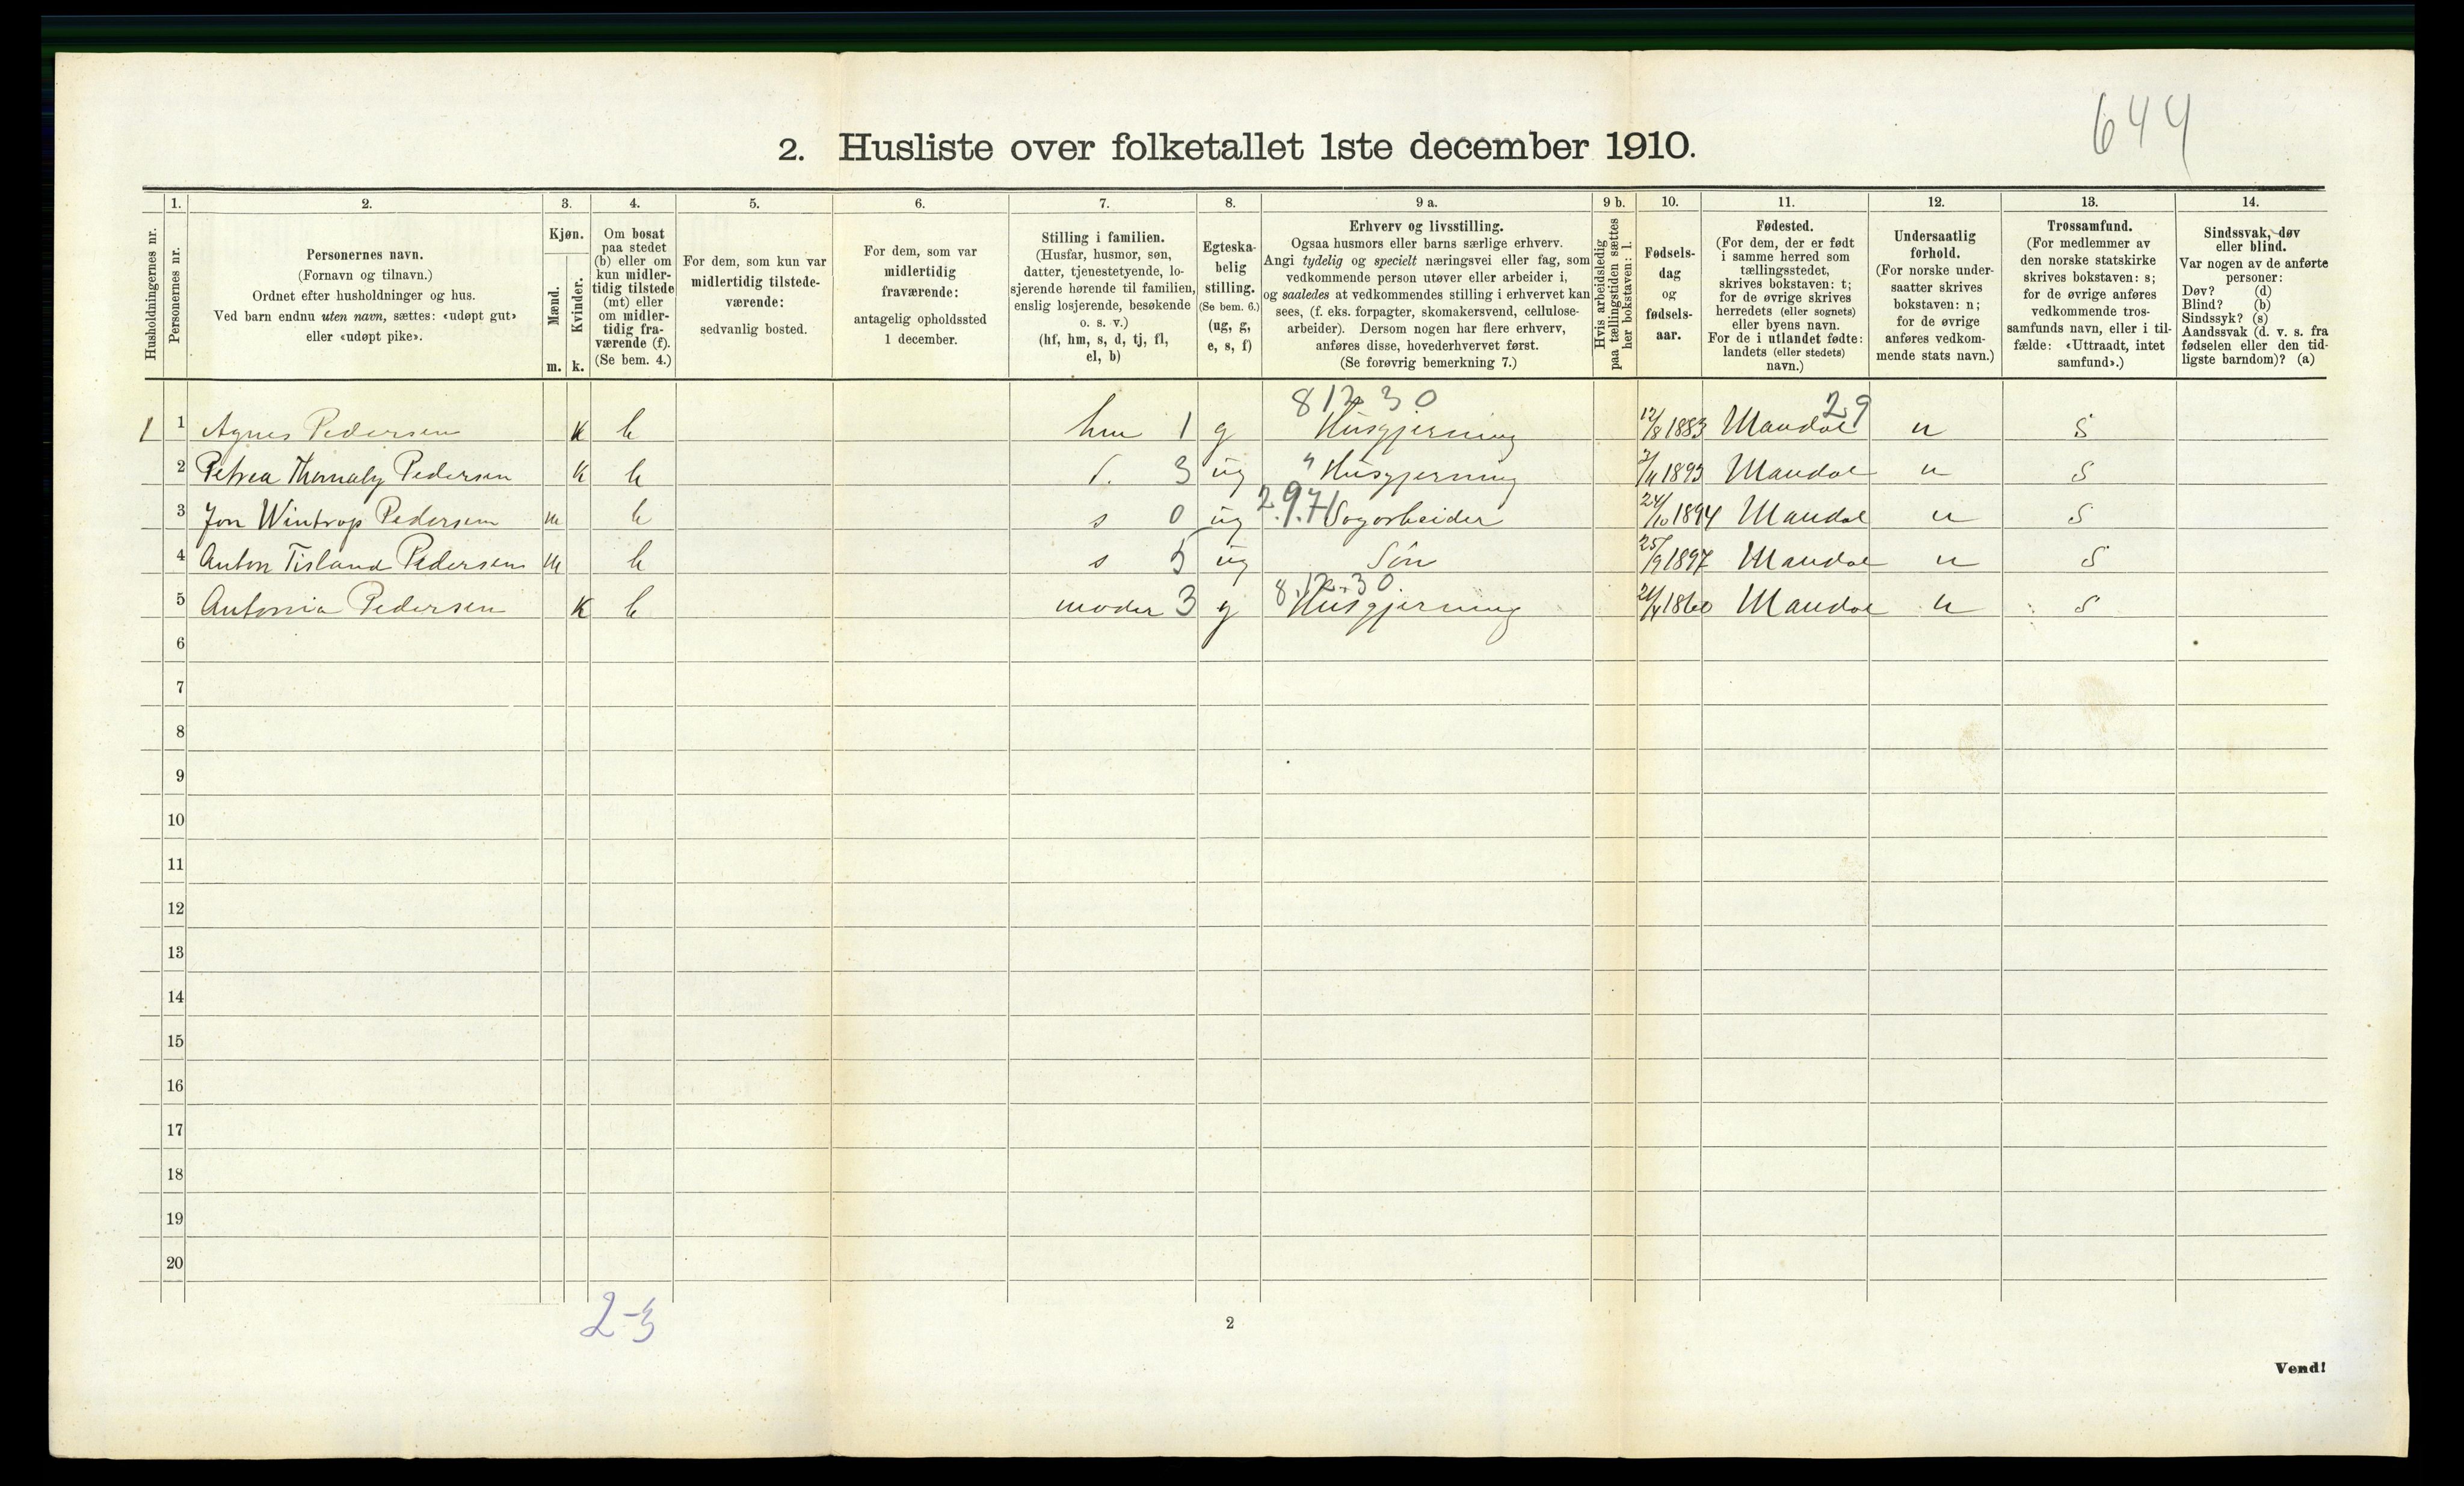 644
2. Husliste over folketallet 1ste december 1910.
Husholdningernes nr.
1.
Personernes nr.
2.
Personernes navn.
(Fornavn og tilnavn.)
Ordnet efter husholdninger og hus.
Ved barn endnu uten navn, sættes: «udøpt gut»
eller «udøpt pike».
3.
Kjøn.
Mænd.
Kvinder.
m. k.
4.
Om bosat
paa stedet
(b) eller om
kun midler-
tidig tilstede
(mt) eller
om midler-
tidig fra-
værende (f).
(Se bem. 4.)
5.
For dem, som kun var
midlertidig tilstede-
værende:
sedvanlig bosted.
6.
For dem, som var
midlertidig
fraværende:
antagelig opholdssted
1 december.
7.
Stilling i familien.
(Husfar, husmor, søn,
datter, tjenestetyende, lo-
sjerende hørende til familien,
enslig losjerende, besøkende
o. s. v.)
(hf, hm, s, d, tj, fl,
el, b)
8.
Egteska-
belig
stilling.
(Se bem. 6.)
(ug, g,
e, s, f)
9 a.
Erhverv og livsstilling.
Ogsaa husmors eller barns særlige erhverv.
Angi tydelig og specielt næringsvei eller fag, som
vedkommende person utøver eller arbeider i,
og saaledes at vedkommendes stilling i erhvervet kan
sees, (f. eks. forpagter, skomakersvend, cellulose-
arbeider). Dersom nogen har flere erhverv,
anføres disse, hovederhvervet først.
(Se forøvrig bemerkning 7.)
9 b.
Hvis arbeidsledig
paa tællingstiden sættes
her bokstaven: l.
10.
Fødsels-
dag
og
fødsels-
aar.
11.
Fødested.
(For dem, der er født
i samme herred som
tællingsstedet,
skrives bokstaven: t;
for de øvrige skrives
herredets (eller sognets)
eller byens navn.
For de i utlandet fødte:
landets (eller stedets)
navn.)
12.
Undersaatlig
forhold.
(For norske under-
saatter skrives
bokstaven: n;
for de øvrige
anføres vedkom-
mende stats navn.)
13.
Trossamfund.
(For medlemmer av
den norske statskirke
skrives bokstaven: s;
for de øvrige anføres
vedkommende tros-
samfunds navn, eller i til-
fælde: «Uttraadt, intet
samfund».)
14.
Sindssvak, døv
eller blind.
Var nogen av de anførte
personer:
Døv? (d)
Blind? (b)
Sindssyk? (s)
Aandssvak (d. v. s. fra
fødselen eller den tid-
ligste barndom)? (a)
8 12 30 29
1 1 Agnes Pedersen K b hm 1 g Husgjerning 12/8 1883 Mandal n S
2 Petrea Pedersen K b d. 3 ug " Husgjerning 1893 Mandal n S
2.9.71
3 Jon Wintrop Pedersen m b s 0 ug Sagarbeider 24/10 1894 Mandal n S
4 Anton Tisland Pedersen m b s 5 ug Sön 25/9 1897 Mandal n S
8.12.30.
5 Antonia Pedersen K b moder 3 g Husgjerning 1860 Mandal n S
6
7
8
9
10
11
12
13
14
15
16
17
18
19
20
2-3
2
Vend!